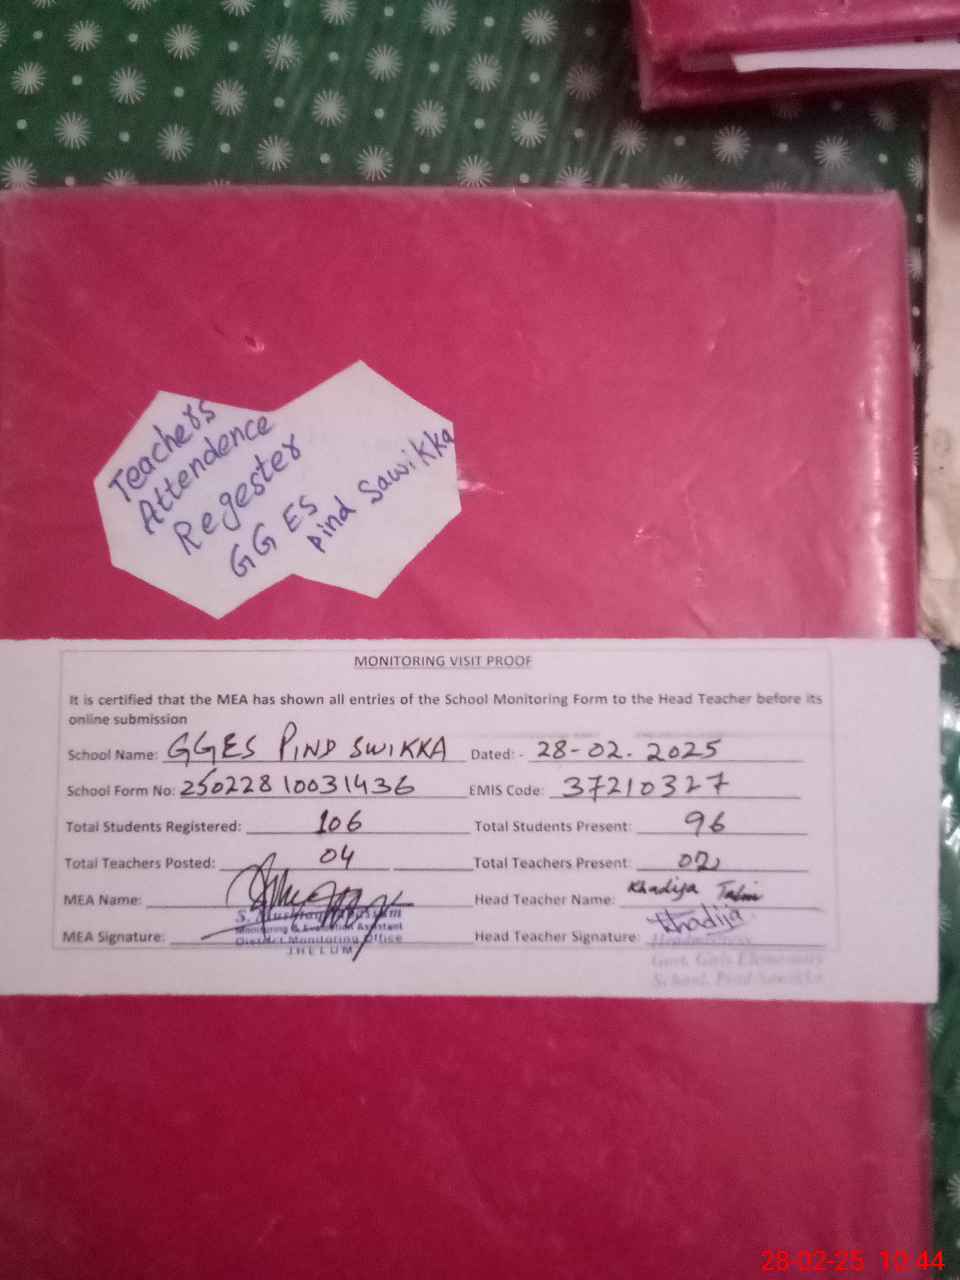 Teachers
Attendence
Regester
GG ES
Pind Sawikka
MONITORING VISIT PROOF
It is certified that the MEA has shown all entries of the School Monitoring Form to the Head Teacher before its
online submission
School Name: GGES PIND SWIKKA Dated: - 28-02-2025
School Form No: 25022810031436 EMIS Code: 37210327
Total Students Registered: 106 Total Students Present: 96
Total Teachers Posted: 04 Total Teachers Present: 02
MEA Name: Head Teacher Name: Khadija
S.
Monitoring & Evaluation Assistant
MEA Signature: Head Teacher Signature: Khadija
District Monitoring Office
JHELUM
Headmistress
Govt. Girls Elementary
School, Pind Sawikka
28-02-25 10:44